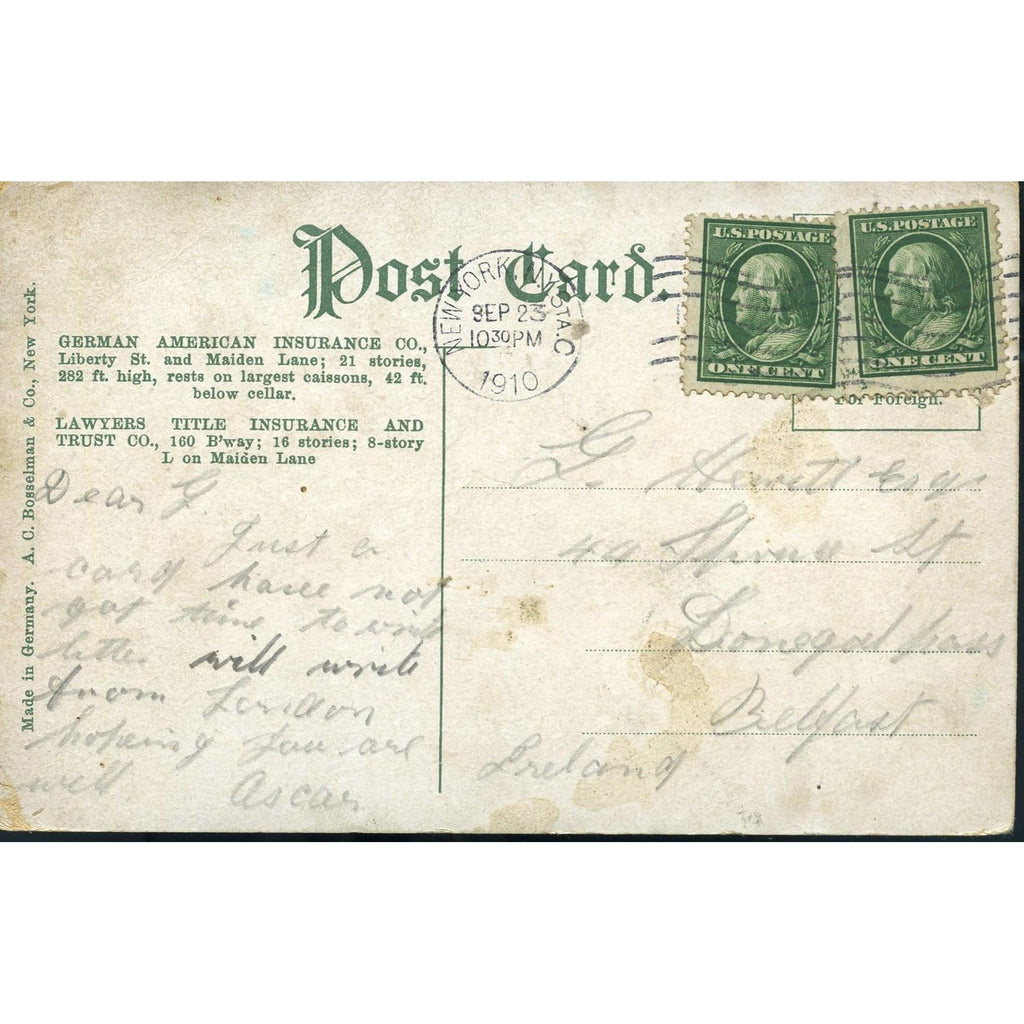 Post Card.
GERMAN AMERICAN INSURANCE CO.,
Liberty St. and Maiden Lane; 21 stories,
282 ft. high, rests on largest caissons, 42 ft.
below cellar.
LAWYERS TITLE INSURANCE AND
TRUST CO., 160 B'way; 16 stories; 8-story
L on Maiden Lane
Made in Germany. A. C. Bosselman & Co., New York.
NEW YORK, N.Y. STA. C
SEP 23
10 30 PM
1910
U.S. POSTAGE
ONE CENT
U.S. POSTAGE
ONE CENT
For Foreign.
Dear G.
Just a
card have not
got time to
letter will write
from London
hopeing you are
well Ascar
G. Hewitt Esq
St
Donegal Pass
Belfast
Ireland